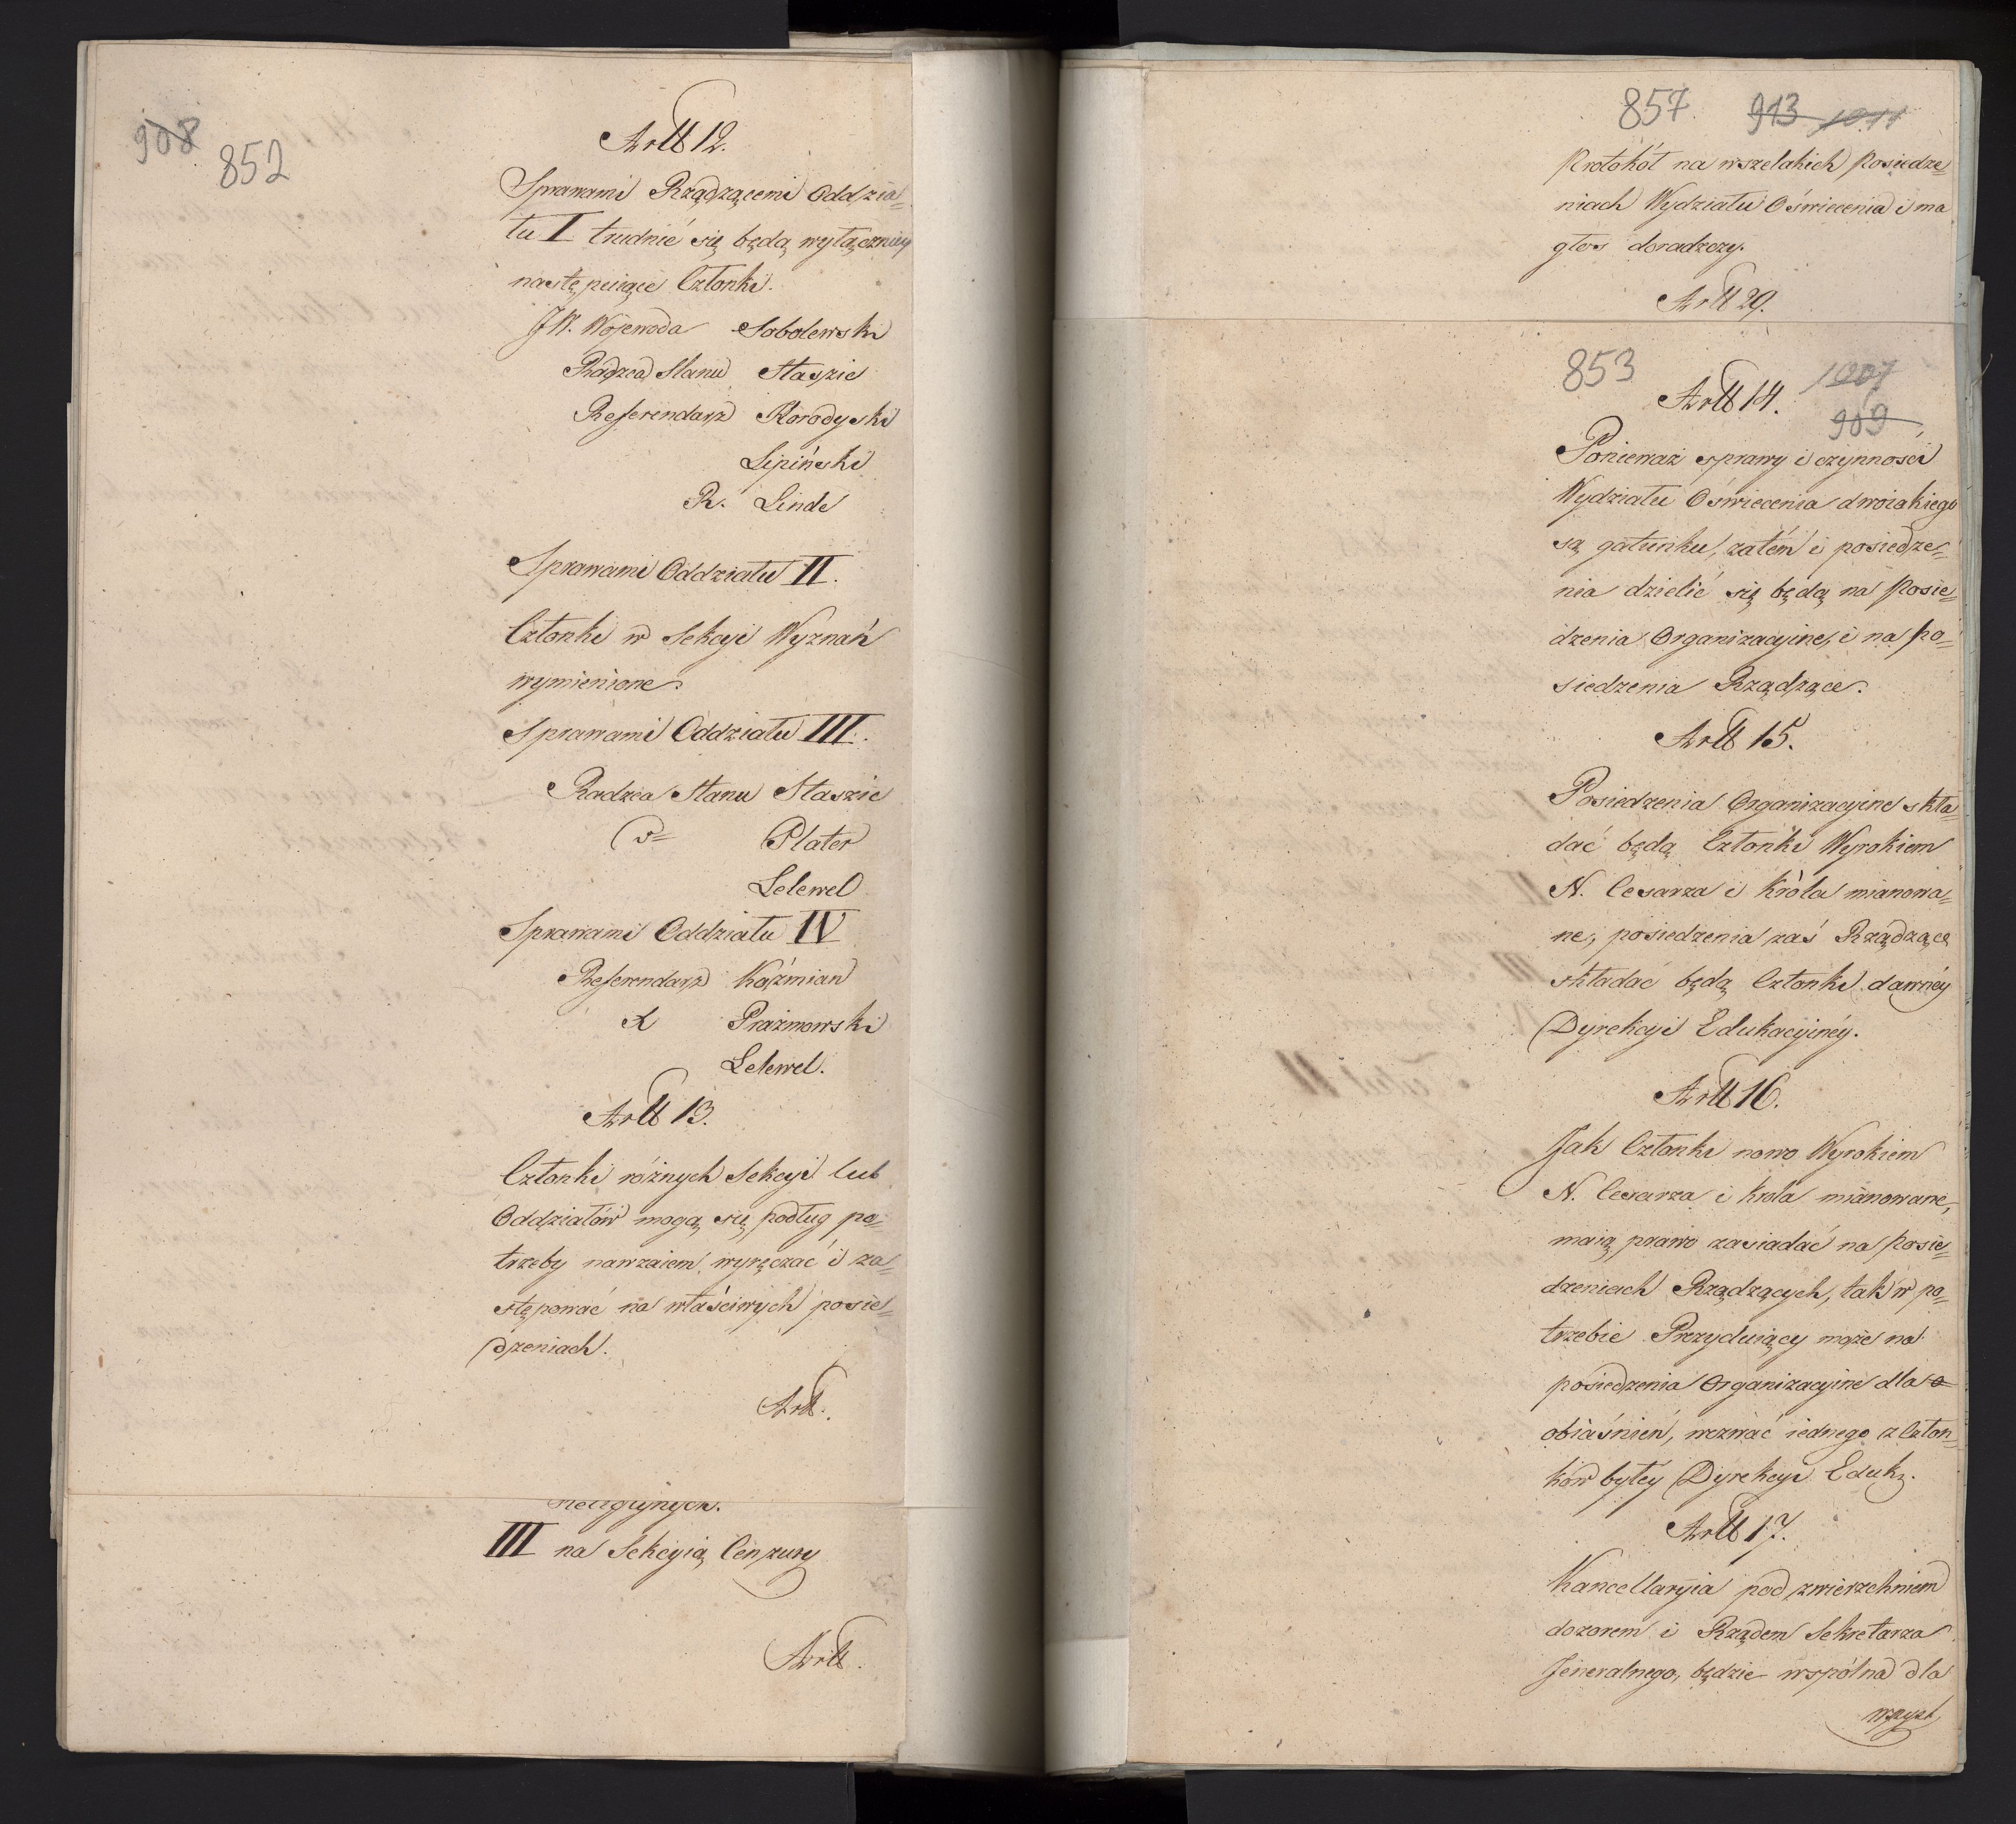 908
852
Artt 12.
Sprawami Rządzącemi Oddzia=
łu I trudnić się będą wyłączniey
następuiące Członki.
JW. Wojewoda Sobolewski
Radzca Stanu Staszic
Referendarz Horodyski
Lipiński
R. Linde
Sprawami Oddziału II.
Członki w Sekcyi Wyznań
wymienione.
Sprawami Oddziału III.
Radzca Stanu Staszic
Plater
Lelewel
Sprawami Oddziału IV
Referendarz Koźmian
X Prażmowski
Lelewel.
Artt 13.
Członki różnych Sekcyi lub
Oddziałów mogą się podług po=
trzeby nawzaiem wyręczać i za=
stępować na właściwych posie=
dzeniach.
Artt.
Religijnych.
III na Sekcyią Cenzury
Artt.
857. 913 1011
Protokół na wszelakich Posiedze=
niach Wydziału Oświecenia i ma
głos doradczy.
Artt 20.
853 1007
Artt 14.
909
Ponieważ sprawy i czynności
Wydziału Oświecenia dwoiakiego
są gatunku, zatém i posiedze=
nia dzielić się będą na Posie=
dzenia Organizacyine, i na po=
siedzenia Rządzące.
Artt 15.
Posiedzenia Organizacyine skła=
dać będą Członki Wyrokiem
N. Cesarza i Króla mianowa=
ne, posiedzenia zaś Rządzące
składać będą Członki dawnéy
Dyrekcyi Edukacyinéy.
Artt 16.
Jak Członki nowo Wyrokiem
N. Cesarza i Króla mianowane,
maią prawo zasiadać na Posie=
dzeniach Rządzących, tak w po=
trzebie Prezyduiący może na
posiedzenia Organizacyine dla o
obiaśnień, wezwać iednego z Człon=
ków byłey Dyrekcyi Eduk.
Artt 17.
Kancellaryia pod zwierzchniem
dozorem i Rządem Sekretarza
Jeneralnego, będzie wspólna dla
wszyst